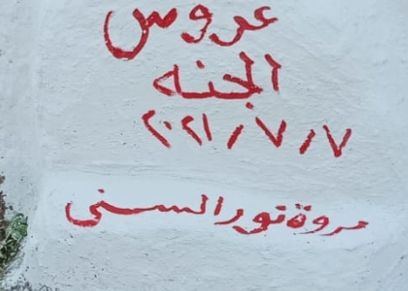 عروس
الجنه
٢٠٢١/٧/٧
مروة نور السني